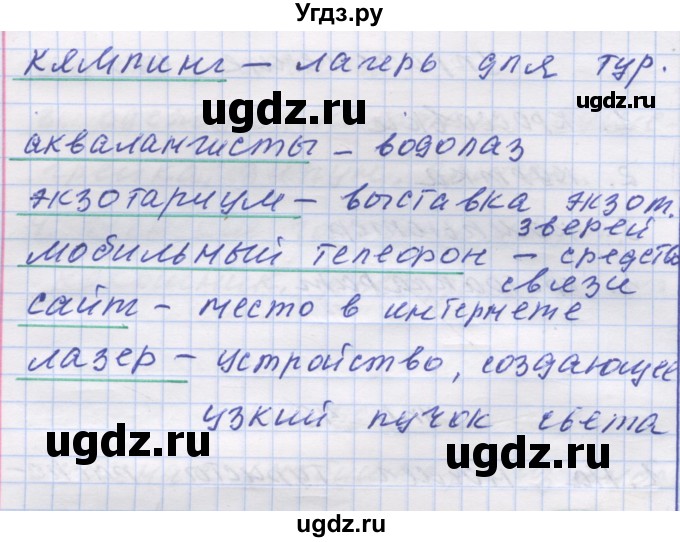 Угдз.ру
кемпинг – лагерь для тур.
ugdz.ru
ugdz.ru
аквалангисты – водолаз
экзотариум – выставка экзот.
зверей
мобильный телефон – средство
связи
сайт – место в интернете
лазер – устройство, создающее
узкий пучок света
ugdz.ru
ugdz.ru
ugdz.ru